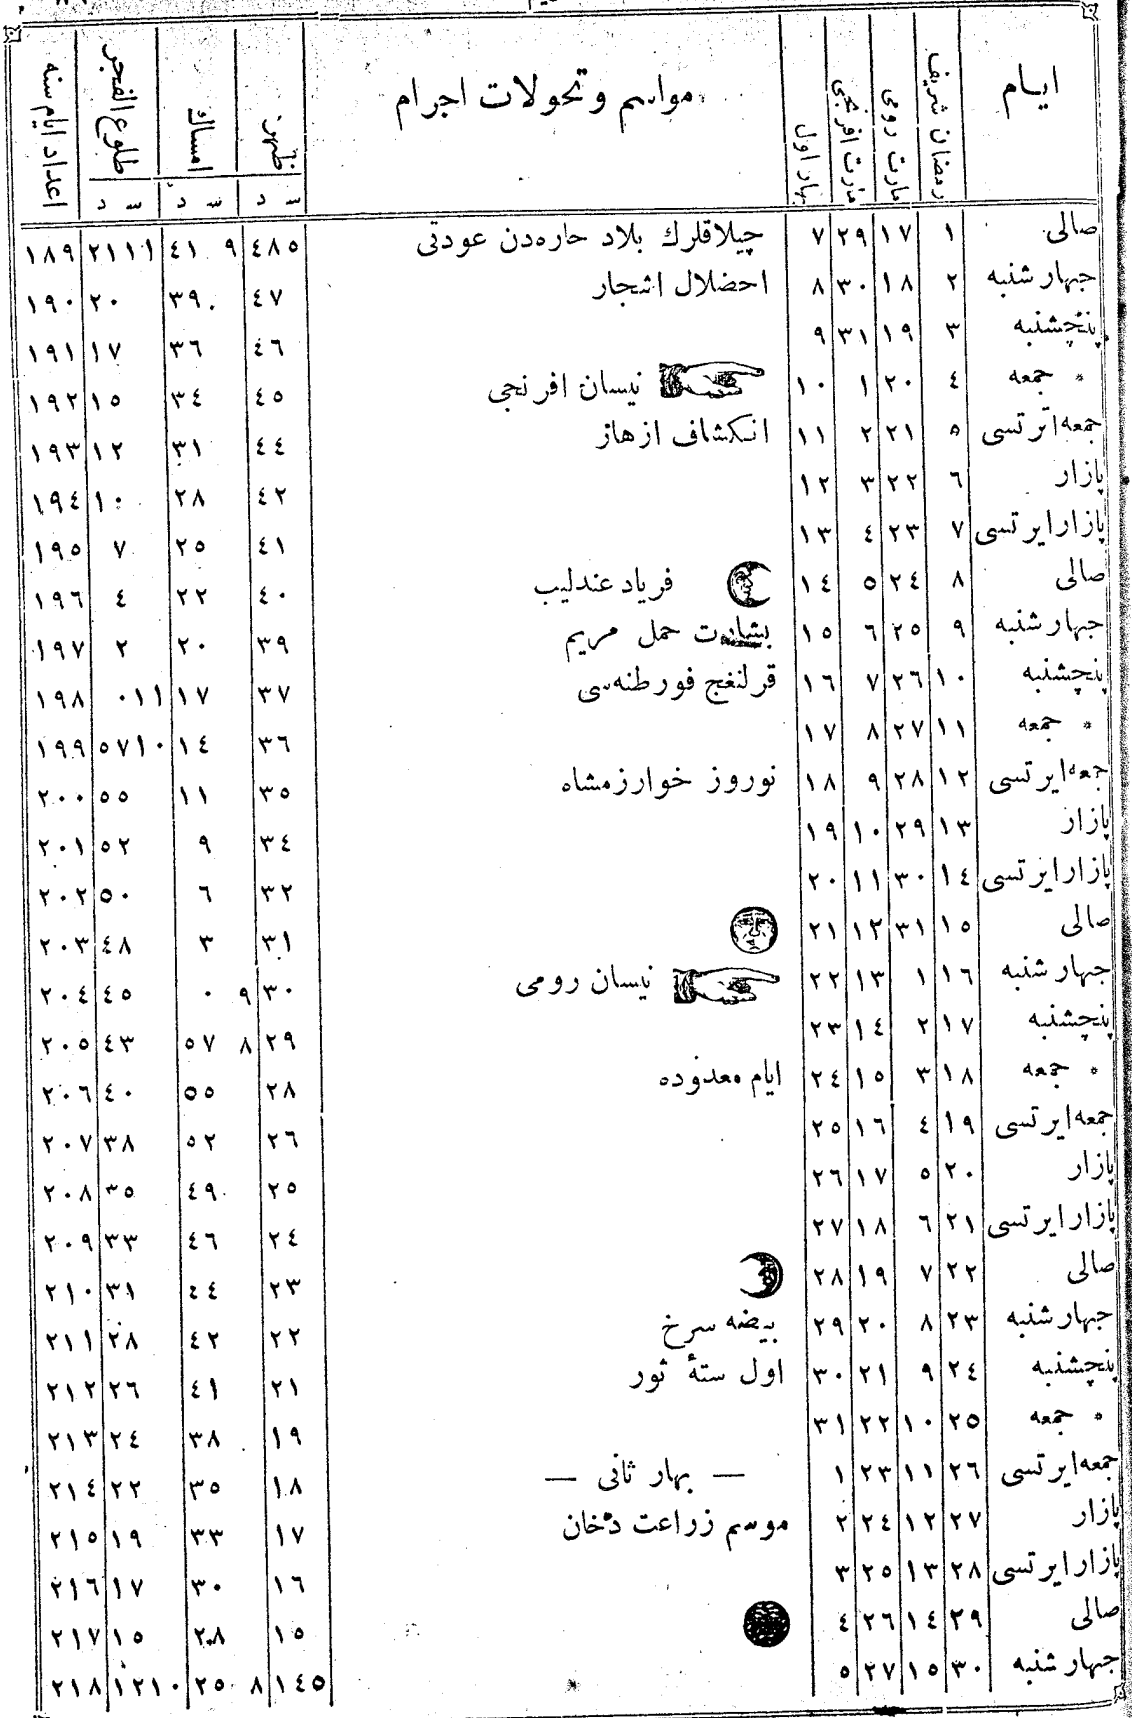 ایام	رمضان شریف	مارت رومی	مارت افرنجی	بهار اول	مواسم و تحولات اجرام	ظهر	امساك	طلوع الفجر	اعداد ایام سنه
س د	س د	س د
صالی	١	١٧	٢٩	٧	چیلاقلرك بلاد حاره‌دن عودتی	٥ ٤٨	٩ ٤١	١١ ٢١	١٨٩
چهارشنبه	٢	١٨	٣٠	٨	احضلال اشجار	٤٧	٣٩	٢٠	١٩٠
پنچشنبه	٣	١٩	٣١	٩	٤٦	٣٦	١٧	١٩١
* جمعه	٤	٢٠	١	١٠	نیسان افرنجی	٤٥	٣٤	١٥	١٩٢
جمعه‌ایرتسی	٥	٢١	٢	١١	انکشاف ازهار	٤٤	٣١	١٢	١٩٣
پازار	٦	٢٢	٣	١٢	٤٢	٢٨	١٠	١٩٤
پازارایرتسی	٧	٢٣	٤	١٣	٤١	٢٥	٧	١٩٥
صالی	٨	٢٤	٥	١٤	فریاد عندلیب	٤٠	٢٢	٤	١٩٦
چهارشنبه	٩	٢٥	٦	١٥	بشارت حمل مریم	٣٩	٢٠	٢	١٩٧
پنچشنبه	١٠	٢٦	٧	١٦	قرلنغج فورطنه‌سی	٣٧	١٧	١١ ٠	١٩٨
* جمعه	١١	٢٧	٨	١٧	٣٦	١٤	١٠ ٥٧	١٩٩
جمعه‌ایرتسی	١٢	٢٨	٩	١٨	نوروز خوارزمشاه	٣٥	١١	٥٥	٢٠٠
پازار	١٣	٢٩	١٠	١٩	٣٤	٩	٥٢	٢٠١
پازارایرتسی	١٤	٣٠	١١	٢٠	٣٢	٦	٥٠	٢٠٢
صالی	١٥	٣١	١٢	٢١	٣١	٣	٤٨	٢٠٣
چهارشنبه	١٦	١	١٣	٢٢	نیسان رومی	٣٠	٩ ٠	٤٥	٢٠٤
پنچشنبه	١٧	٢	١٤	٢٣	٢٩	٨ ٥٧	٤٣	٢٠٥
* جمعه	١٨	٣	١٥	٢٤	ایام معدوده	٢٨	٥٥	٤٠	٢٠٦
جمعه‌ایرتسی	١٩	٤	١٦	٢٥	٢٦	٥٢	٣٨	٢٠٧
پازار	٢٠	٥	١٧	٢٦	٢٥	٤٩	٣٥	٢٠٨
پازارایرتسی	٢١	٦	١٨	٢٧	٢٤	٤٦	٣٣	٢٠٩
صالی	٢٢	٧	١٩	٢٨	٢٣	٤٤	٣١	٢١٠
چهارشنبه	٢٣	٨	٢٠	٢٩	بیضه سرخ	٢٢	٤٢	٢٨	٢١١
پنچشنبه	٢٤	٩	٢١	٣٠	اول ستهٔ ثور	٢١	٤١	٢٦	٢١٢
* جمعه	٢٥	١٠	٢٢	٣١	١٩	٣٨	٢٤	٢١٣
جمعه‌ایرتسی	٢٦	١١	٢٣	١	— بهار ثانی —	١٨	٣٥	٢٢	٢١٤
پازار	٢٧	١٢	٢٤	٢	موسم زراعت دخان	١٧	٣٣	١٩	٢١٥
پازارایرتسی	٢٨	١٣	٢٥	٣	١٦	٣٠	١٧	٢١٦
صالی	٢٩	١٤	٢٦	٤	١٥	٢٨	١٥	٢١٧
چهارشنبه	٣٠	١٥	٢٧	٥	٥ ١٤	٨ ٢٥	١٠ ١٢	٢١٨